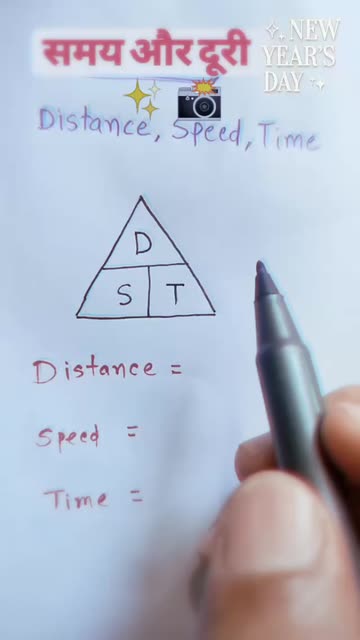 समय और दूरी
NEW
YEAR'S
DAY
Distance, Speed, Time
D
S T
Distance =
Speed =
Time =